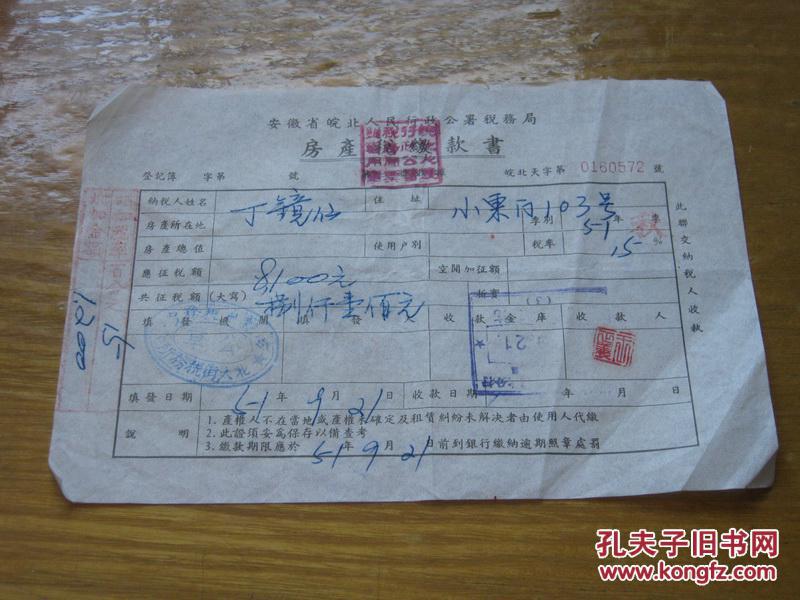 安徽省皖北人民行政公署税務局
房產税繳款書
登記簿 字第 號 皖北天字第 0160572 號
納税人姓名 丁鏡仙 住址 小東门103号
房產所在地 季别 51年 秋季
房產總值 使用户别 税率 15%
應征税額 8100元 空閒加征額
共征税額(大寫) 捌仟壹佰元
填發機關填發 收款金庫 收款人
北大街税務所
21
填發日期 51年9月21日 收款日期 年 月 日
説明 1. 產權人不在當地或產權未確定及租賃糾紛未解决者由使用人代繳
2. 此證須妥為保存以備查考
3. 繳款期限應於51年9月21日前到銀行繳納逾期照章處罰
此聯交納税人收執
孔夫子旧书网
www.kongfz.com